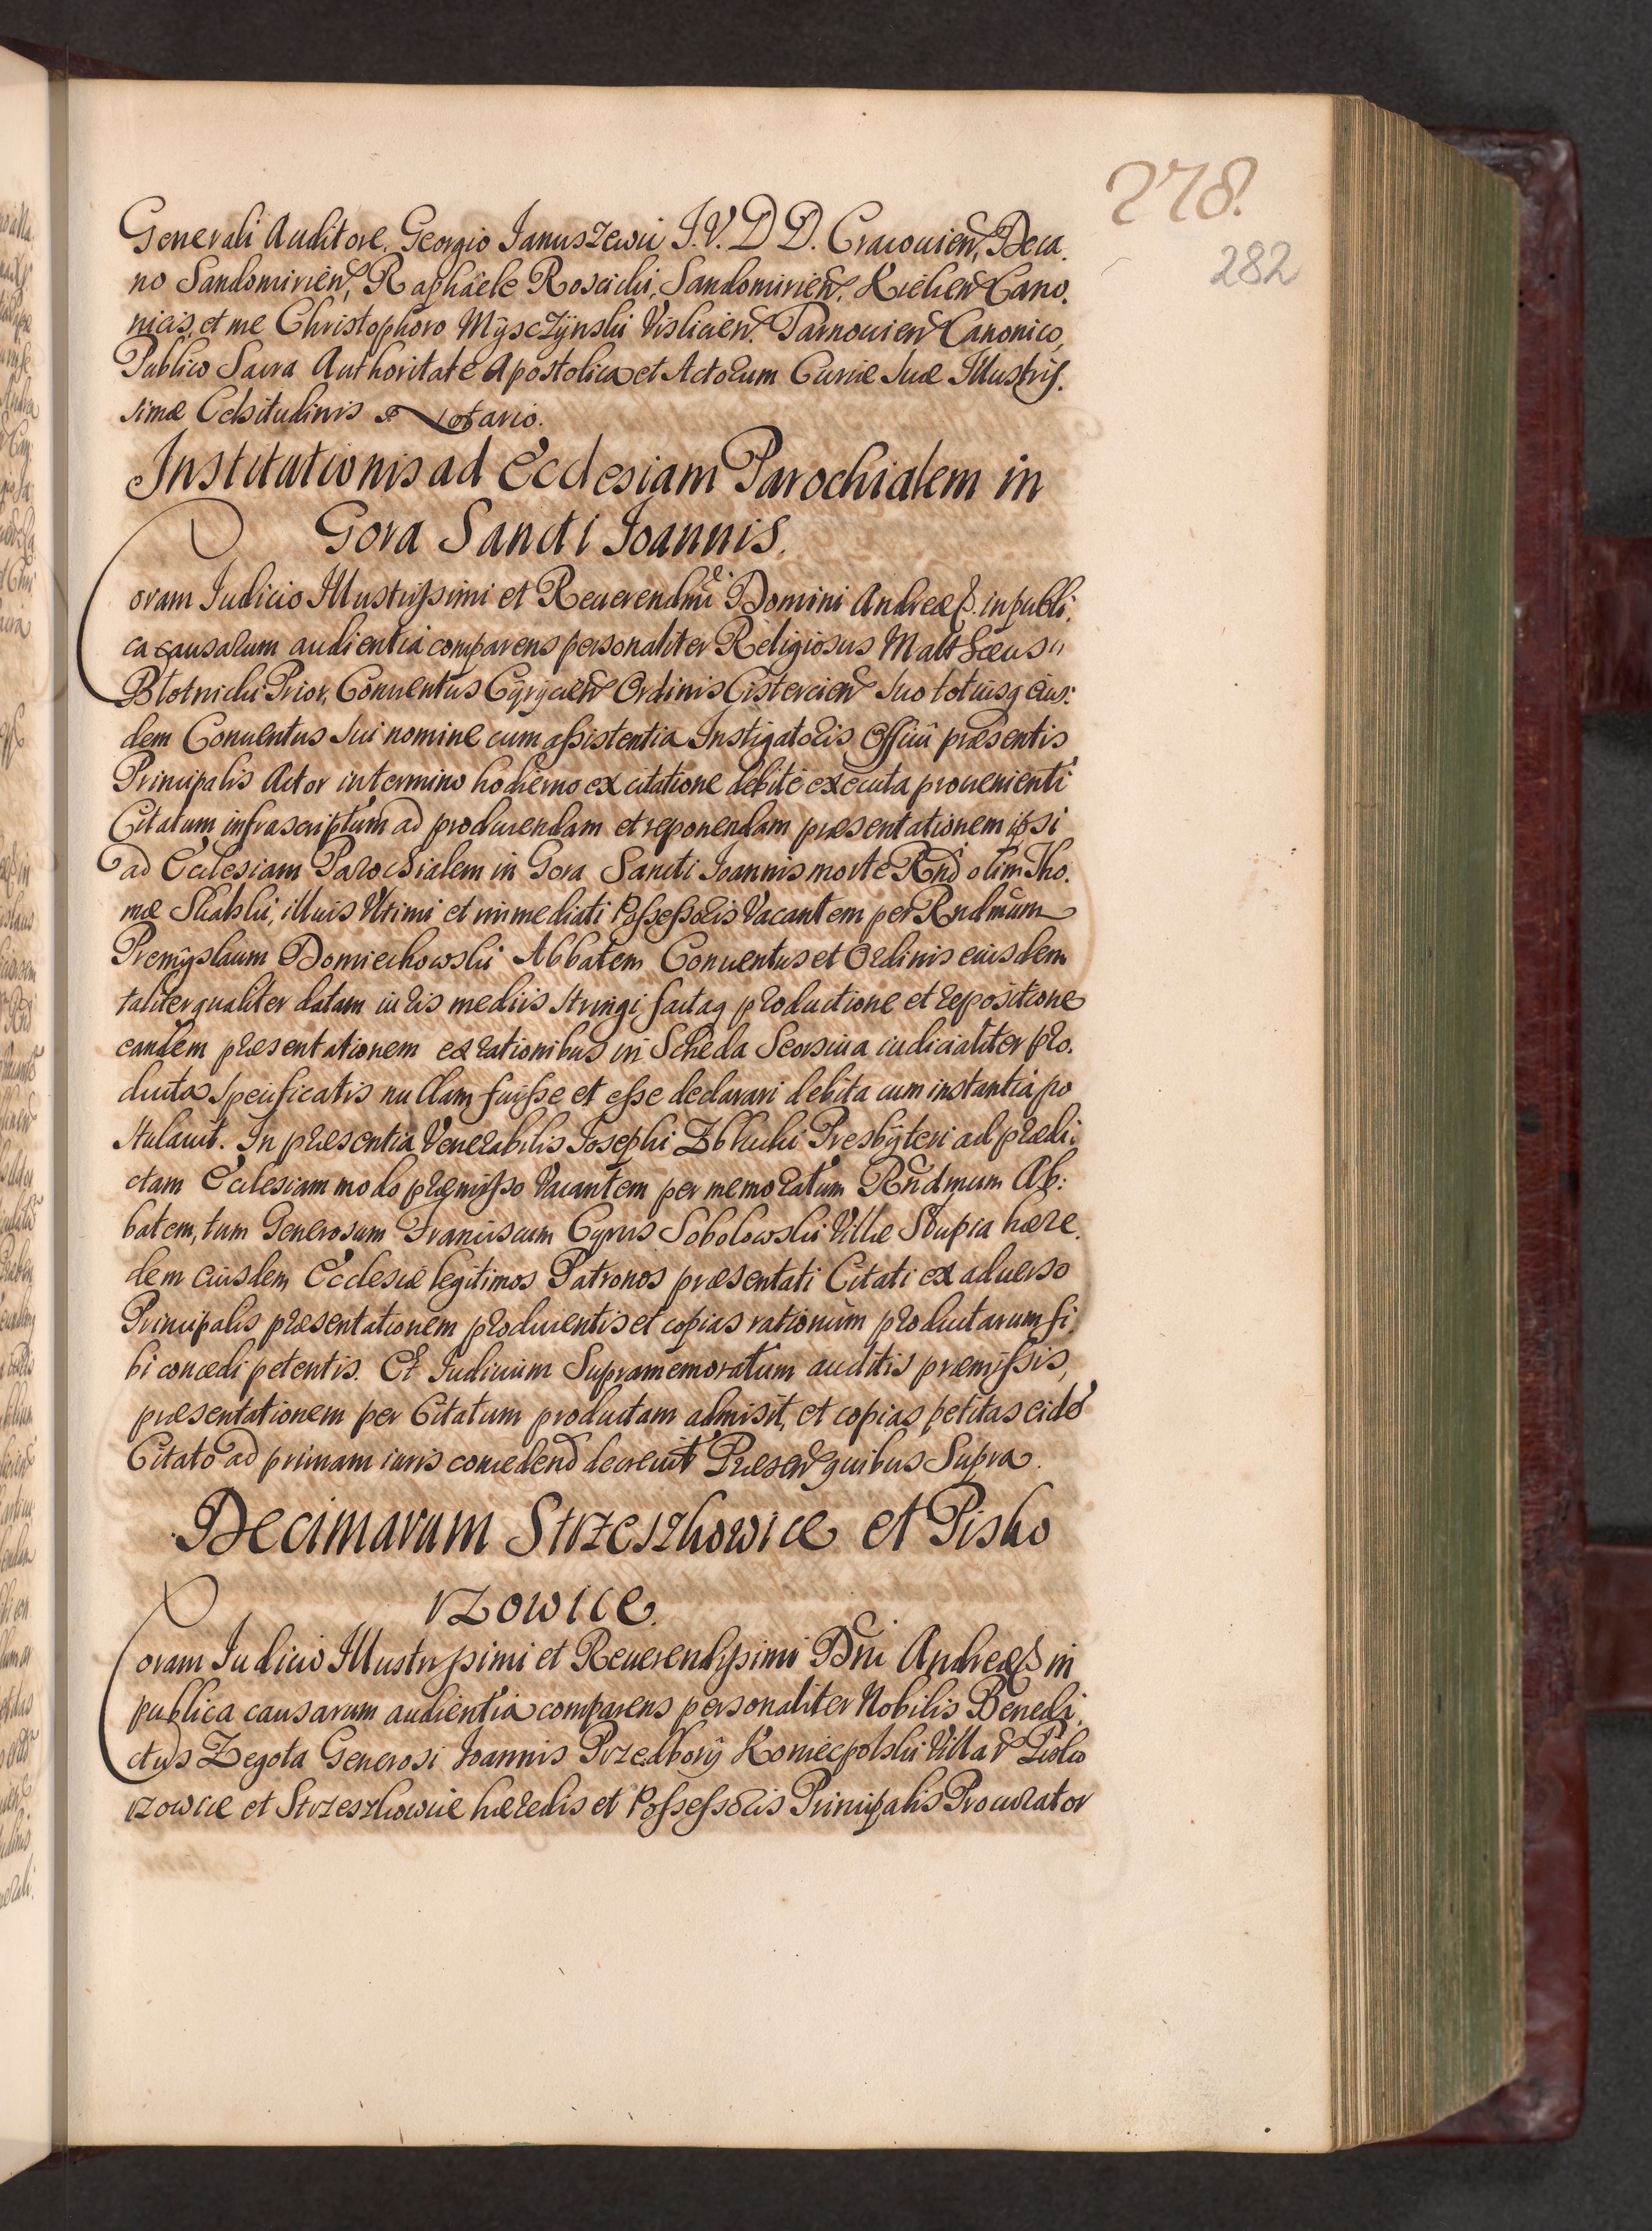 278.
282
Generali Auditore, Georgio Januszewic J. V. D D. Cracovien, Deca-
no Sandomirien, Raphaële Roscicki, Sandomirien. Kielcen Cano-
nicis, et me Christophoro Mÿsczÿnski Vislicien. Tarnovien Canonico,
Publico Sacra Authoritate Apostolica et Actorum Curiæ Suæ Illustris-
simæ Celsitudinis Notario.
Institutionis ad Ecclesiam Parochialem in
Gora Sancti Joannis.
Coram Judicio Illustrissimi et Reverendmi Domini Andreæ in publi-
ca causarum audientia comparens personaliter Religiosus Matthæus
Blotnicki Prior, Conventus Cyrycien Ordinis Cistercien suo totiusq eius-
dem Conventus sui nomine cum assistentia Instigatoris Officii præsentis
Principalis Actor in termino hodierno ex citatione debitè executa provenienti
Citatum infrascriptum ad producendam et reponendam præsentationem ipsi
ad Ecclesiam Parochialem in Gora Sancti Joannis morte Rndi olim Tho-
mæ Skalski, illius Vltimi et immediati Possessoris Vacantem per Rndmum
Premÿslaum Domiechowski Abbatem Conventus et Ordinis eiusdem
taliter qualiter datam iuris mediis stringi factaq productione et repositione
eandem præsentationem ex rationibus in Scheda Seorsiva iudicialiter pro-
ducta specificatis nullam fuisse et esse declarari debita cum instantia po
stulavit. In præsentia Venerabilis Josephi Zblucki Presbÿteri ad prædi-
ctam Ecclesiam modo præmisso Vacantem per memoratum Rndmum Ab-
batem, tum Generosum Franciscum Cyrus Sobolowski Villæ Slupia hære-
dem eiusdem Ecclesiæ legitimos Patronos præsentati Citati ex adverso
Principalis præsentationem producentis et copias rationum productarum si-
bi concedi petentis. Et Judicium Supramemoratum auditis præmissis,
præsentationem per Citatum productam admisit, et copias petitas eidē
Citato ad primam iuris concedend decrevit Præsen quibus Supra.
Decimarum Strzeszkowice et Pisko
rzowice.
Coram Judicio Illustrissimi et Reverendissimi Dni Andreæ in
publica causarum audientia comparens personaliter Nobilis Benedi-
ctus Zegota Generosi Joannis Przedborÿ Koniecpolski Villar Pisko
rzowice et Strzeszkowice hæredis et Possessoris Principalis Procurator